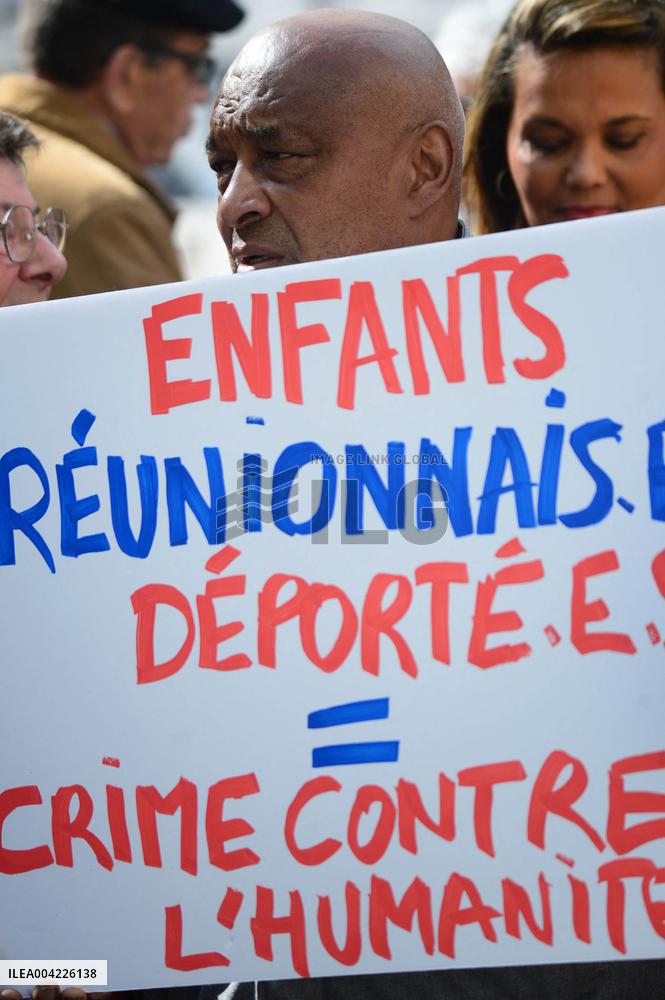 ENFANTS
RÉUNIONNAIS.E
IMAGE LINK GLOBAL
DÉPORTÉ.E.S
=
CRIME CONTRE
L'HUMANITÉ
ILEA004226138